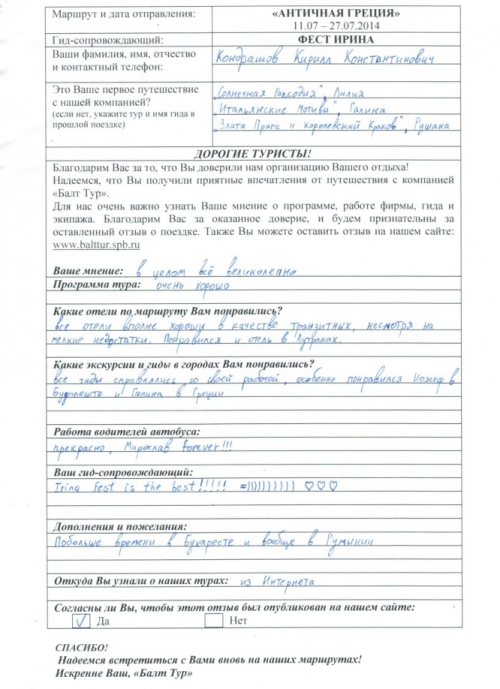 Маршрут и дата отправления:
«АНТИЧНАЯ ГРЕЦИЯ»
11.07 – 27.07.2014
Гид-сопровождающий:
ФЕСТ ИРИНА
Ваши фамилия, имя, отчество
и контактный телефон:
Кондрашов Кирилл Константинович
Это Ваше первое путешествие
с нашей компанией?
(если нет, укажите тур и имя гида в
прошлой поездке)
„Солнечная Рапсодия", Лилия
„Итальянские Мотивы", Галина
„Злата Прага и Королевский Краков", Рушана
ДОРОГИЕ ТУРИСТЫ!
Благодарим Вас за то, что Вы доверили нам организацию Вашего отдыха!
Надеемся, что Вы получили приятные впечатления от путешествия с компанией
«Балт Тур».
Для нас очень важно узнать Ваше мнение о программе, работе фирмы, гида и
экипажа. Благодарим Вас за оказанное доверие, и будем признательны за
оставленный отзыв о поездке. Также Вы можете оставить отзыв на нашем сайте:
www.balttur.spb.ru
Ваше мнение: в целом всё великолепно
Программа тура: очень хорошо
Какие отели по маршруту Вам понравились?
все отели вполне хороши в качестве транзитных, несмотря на
мелкие недостатки. Понравился и отель в Лутраках.
Какие экскурсии и гиды в городах Вам понравились?
все гиды справлялись со своей работой, особенно понравился Йожеф в
Будапеште и Галина в Греции
Работа водителей автобуса:
прекрасно, Мирослав forever!!!
Ваш гид-сопровождающий:
Irina Fest is the best!!!!! =)))))))))) ♡♡♡
Дополнения и пожелания:
Побольше времени в Бухаресте и вообще в Румынии
Откуда Вы узнали о наших турах: из Интернета
Согласны ли Вы, чтобы этот отзыв был опубликован на нашем сайте:
✓ Да Нет
СПАСИБО!
Надеемся встретиться с Вами вновь на наших маршрутах!
Искренне Ваш, «Балт Тур»